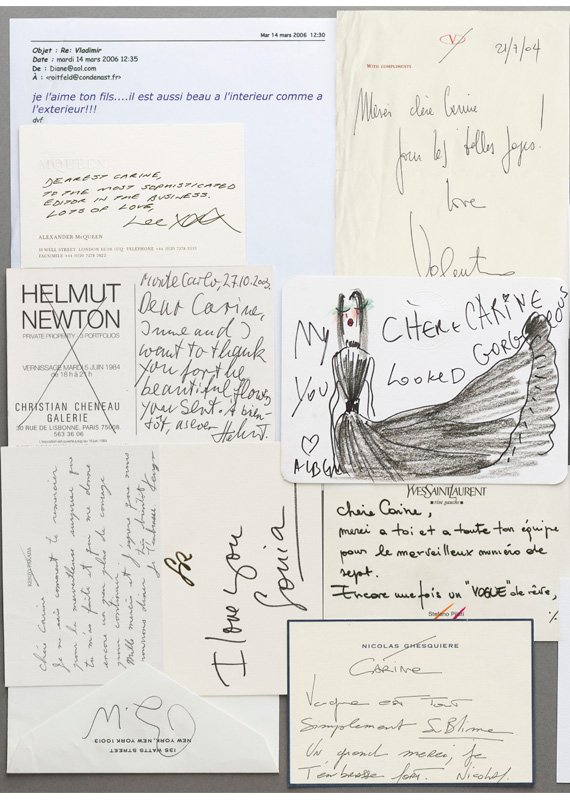 Mar 14 mars 2006 12:30
Objet : Re: Vladimir
Date : mardi 14 mars 2006 12:35
De : Diane@aol.com
À : <roitfeld@condenast.fr>
je l'aime ton fils....il est aussi beau a l'interieur comme a
l'exterieur!!!
dvf
McQUEEN
DEAREST CARINE,
TO THE MOST SOPHISTICATED
EDITOR IN THE BUSINESS.
LOTS OF LOVE,
Lee XXX
ALEXANDER McQUEEN
V
21/7/04
WITH COMPLIMENTS
Merci chère Carine
pour les belles pages!
love
Valentino
HELMUT
NEWTON
PRIVATE PROPERTY 3 PORTFOLIOS
VERNISSAGE MARDI 5 JUIN 1984
de 18 h à 21 h
CHRISTIAN CHENEAU
GALERIE
30 RUE DE LISBONNE, PARIS 75008.
563 36 06
Monte Carlo, 27.10.2003
Dear Carine,
June and I
want to thank
you for the
beautiful flowers
you sent. A bien-
tôt, as ever Helmut.
MY CHÈRE CARINE
YOU LOOKED GORGEOUS
♡
ALBER
Chère Carine
Je ne sais comment te remercier
pour la merveilleuse surprise que
tu m'as faite et qui me donne
encore un peu plus de courage
pour continuer
Mille mercis et j'espère que nous
I love you
Sonia
YVES SAINT LAURENT
rive gauche
Chère Carine,
merci a toi et a toute ton équipe
pour le merveilleux numéro de
sept.
Encore une fois un "VOGUE" de rêve,
Stefano Pilati
NICOLAS GHESQUIERE
CARINE
Vogue est tout
simplement SuBlime
Un grand merci, je
T'embrasse fort. Nicolas.
135 WATTS STREET
NEW YORK, NEW YORK 10013